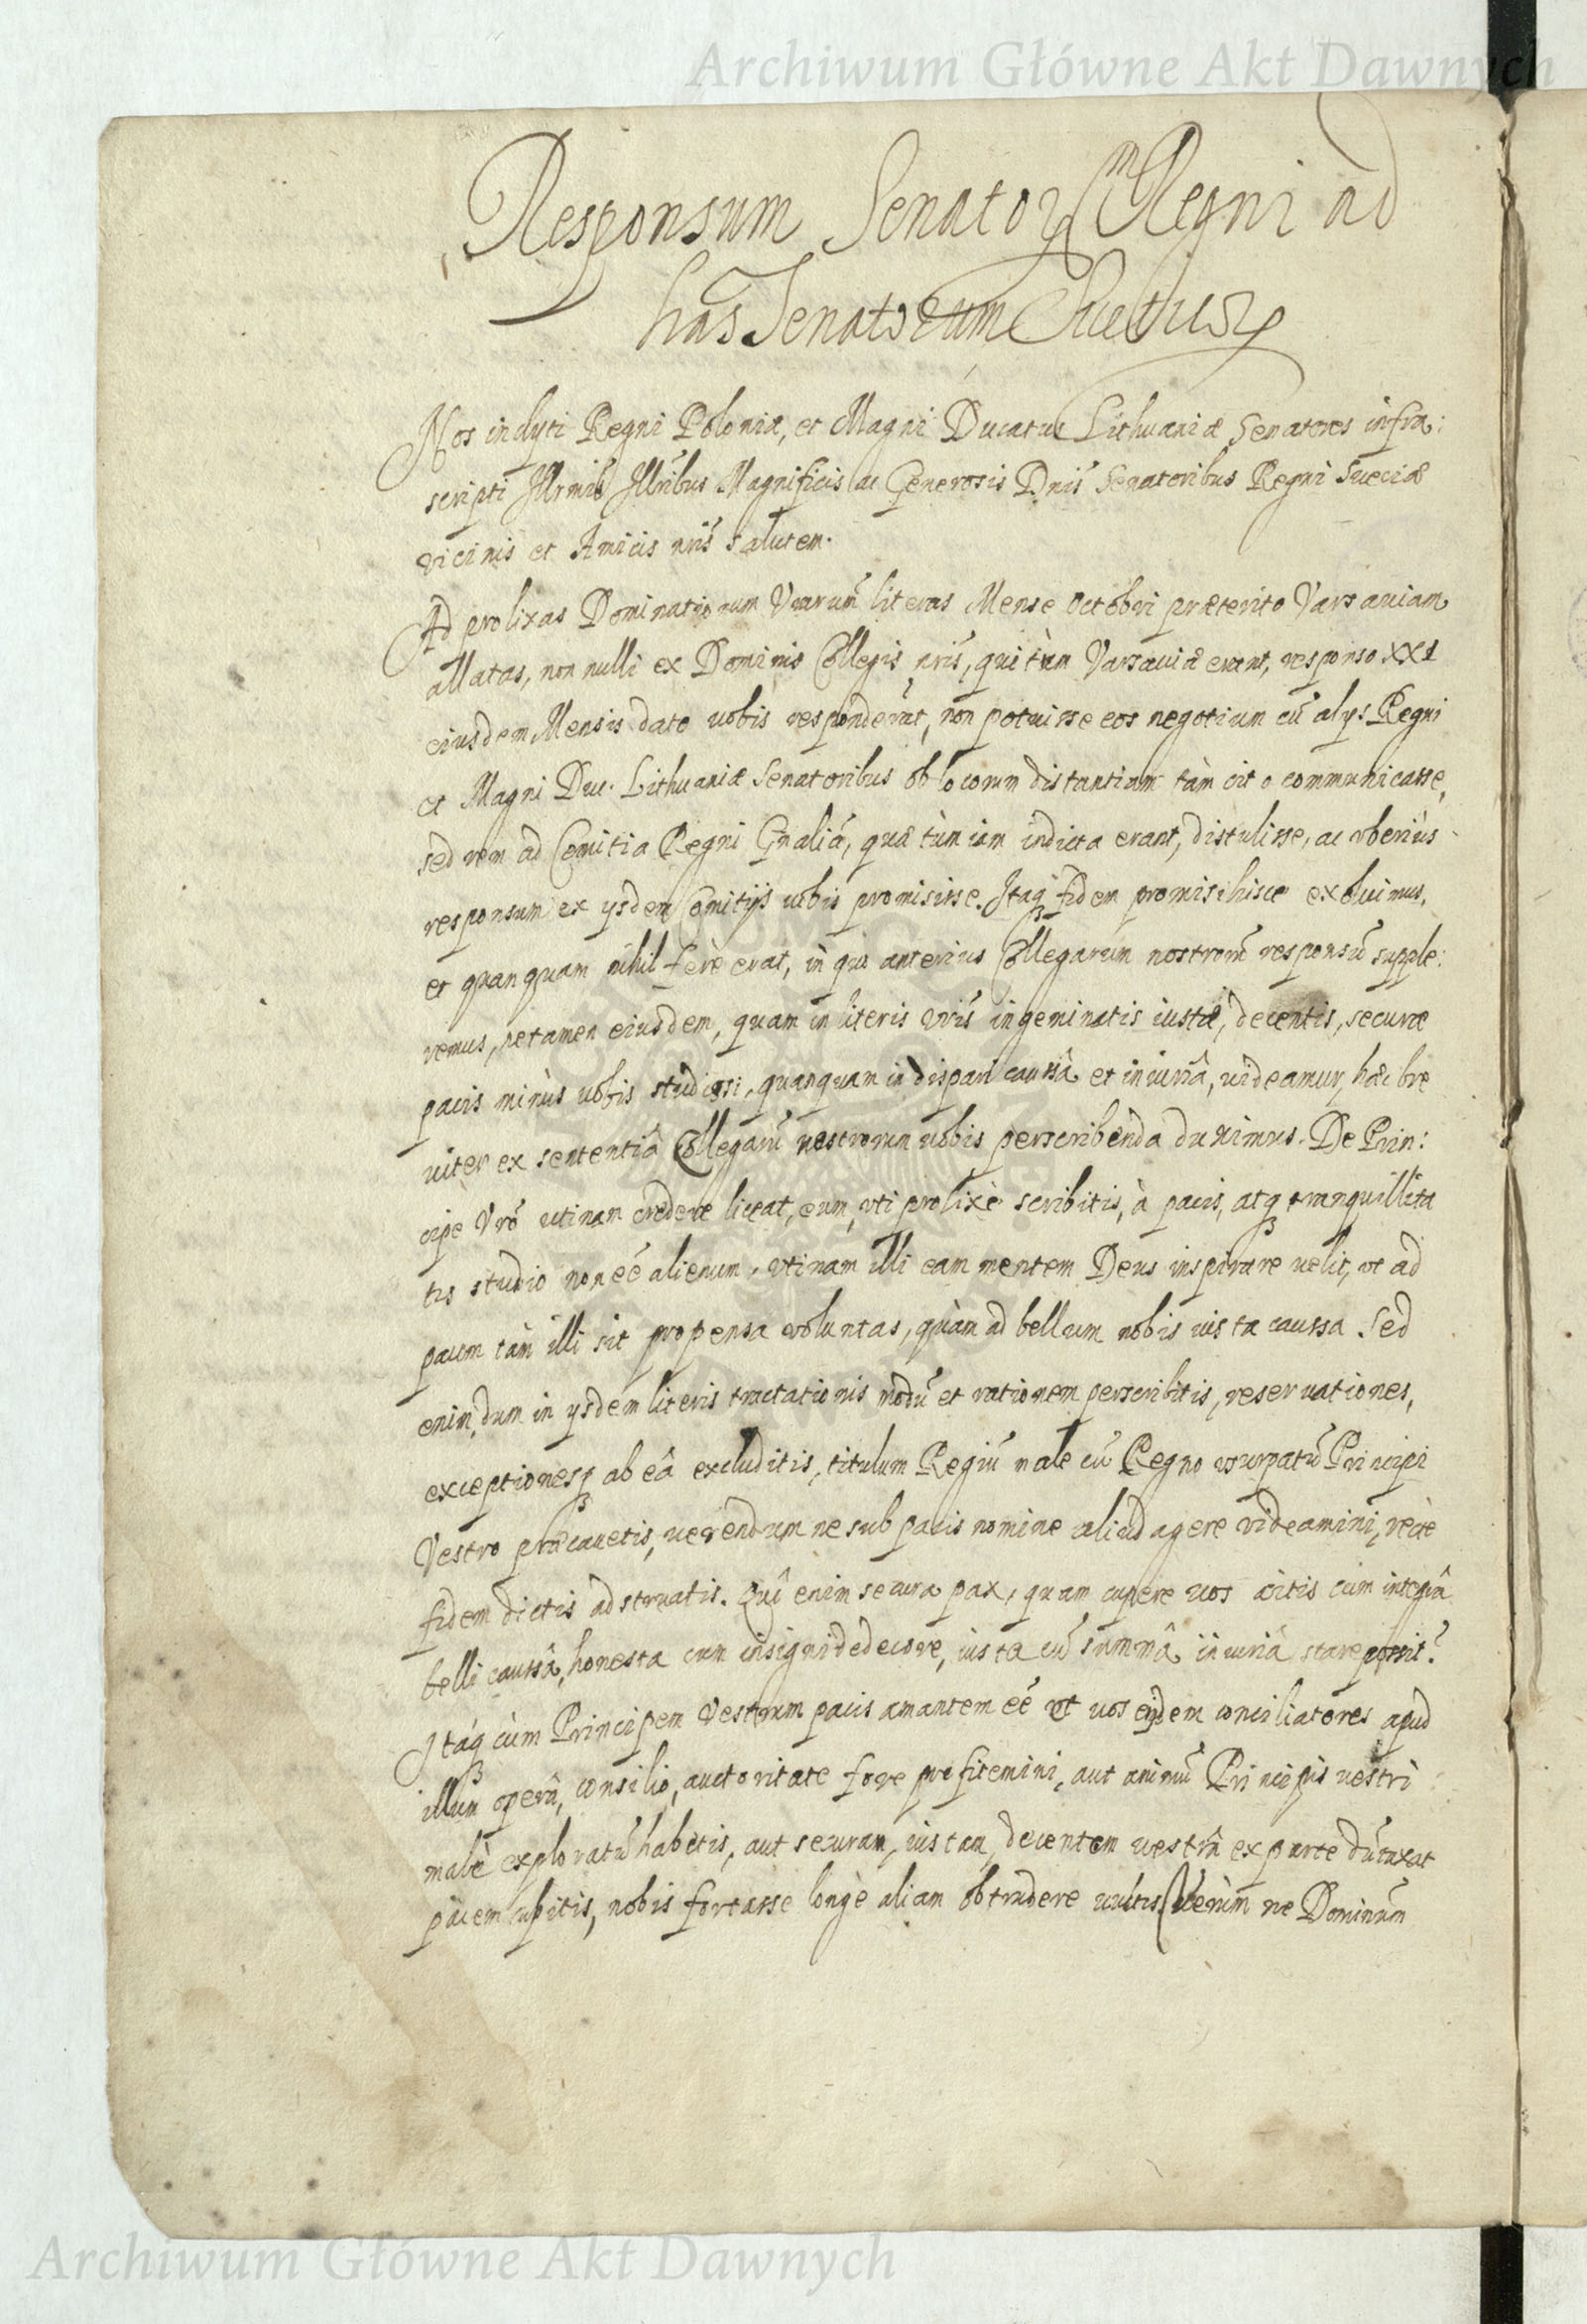 Archiwum Główne Akt Dawnych
Responsum Senatoꝝ Regni ad
has Senatorum
Nos inclyti Regni Poloniæ, et Magni Ducatus Lithuaniæ Senatores infra:
scripti Illrmis Illribus Magnificis ac Generosis Dnis Senatoribus Regni Sueciæ
vicinis et Amicis nris salutem.
Ad prolixas Dominationum Vrarum literas Mense Octobri præterito Varsauiam
allatas, non nulli ex Dominis Collegis nris, qui tùm Varsauiæ erant, responso XXI
eiusdem Mensis dato uobis responderũt, non potuisse eos negotium cũ alys Regni
et Magni Duc. Lithuaniæ Senatoribus ob locorum distantiam tàm cito communicasse,
sed rem ad Comitia Regni Gnalia, quæ tùm iam indicta erant, distulisse, ac vberiùs
responsum ex ysdem Comitijs uobis promisisse. Itaqꝫ fidem promisi hisce exoluimus,
et quanquam nihil ferè erat, in quo anterius Collegarum nostrorũ responsũ supple:
remus, ne tamen eiusdem, quam in literis vris ingeminatis iustæ, decentis, securæ
pacis minùs uobis studiosi, quanquam in dispari caussâ et iniuriâ, uideamur, hæc bre
uiter ex sententiâ Collegarũ nostrorum uobis perscribenda duximus. De Prin:
cipe Vrõ utinam credere liceat, eum, vti prolixè scribitis, à pacis, atqꝫ tranquillita
tis studio non eẽ alienum, vtinam illi eam mentem Deus inspirare uelit, vt ad
pacem tàm illi sit propensa voluntas, quàm ad bellum nobis iusta caussa. Sed
enim, dum in ysdem literis tractationis modũ et rationem perscribitis, reseruationes,
exceptionesqꝫ ab eâ excluditis, titulum Regiũ male cũ Regno vsurpatũ Principi
Vestro præcauetis, uerendum ne sub pacis nomine aliud agere videamini, recte
fidem dictis adstruatis. Quî enim secura pax, quam cupere uos citis cum integrâ
belli caussâ, honesta cum insigni dedecore, iusta cũ summâ iniuriâ stare possit?
Itaqꝫ cùm Principem Vestrum pacis amantem eẽ et uos eysdem conciliatores apud
illum operâ, consilio, auctoritate fore profitemini, aut animũ Principis uestri
malè exploratũ habetis, aut securam, iustam, decentem uestrâ ex parte dũtaxat
pacem cupitis, nobis fortasse longè aliam obtrudere uultis. Verùm ne Dominũm
Archiwum Główne Akt Dawnych